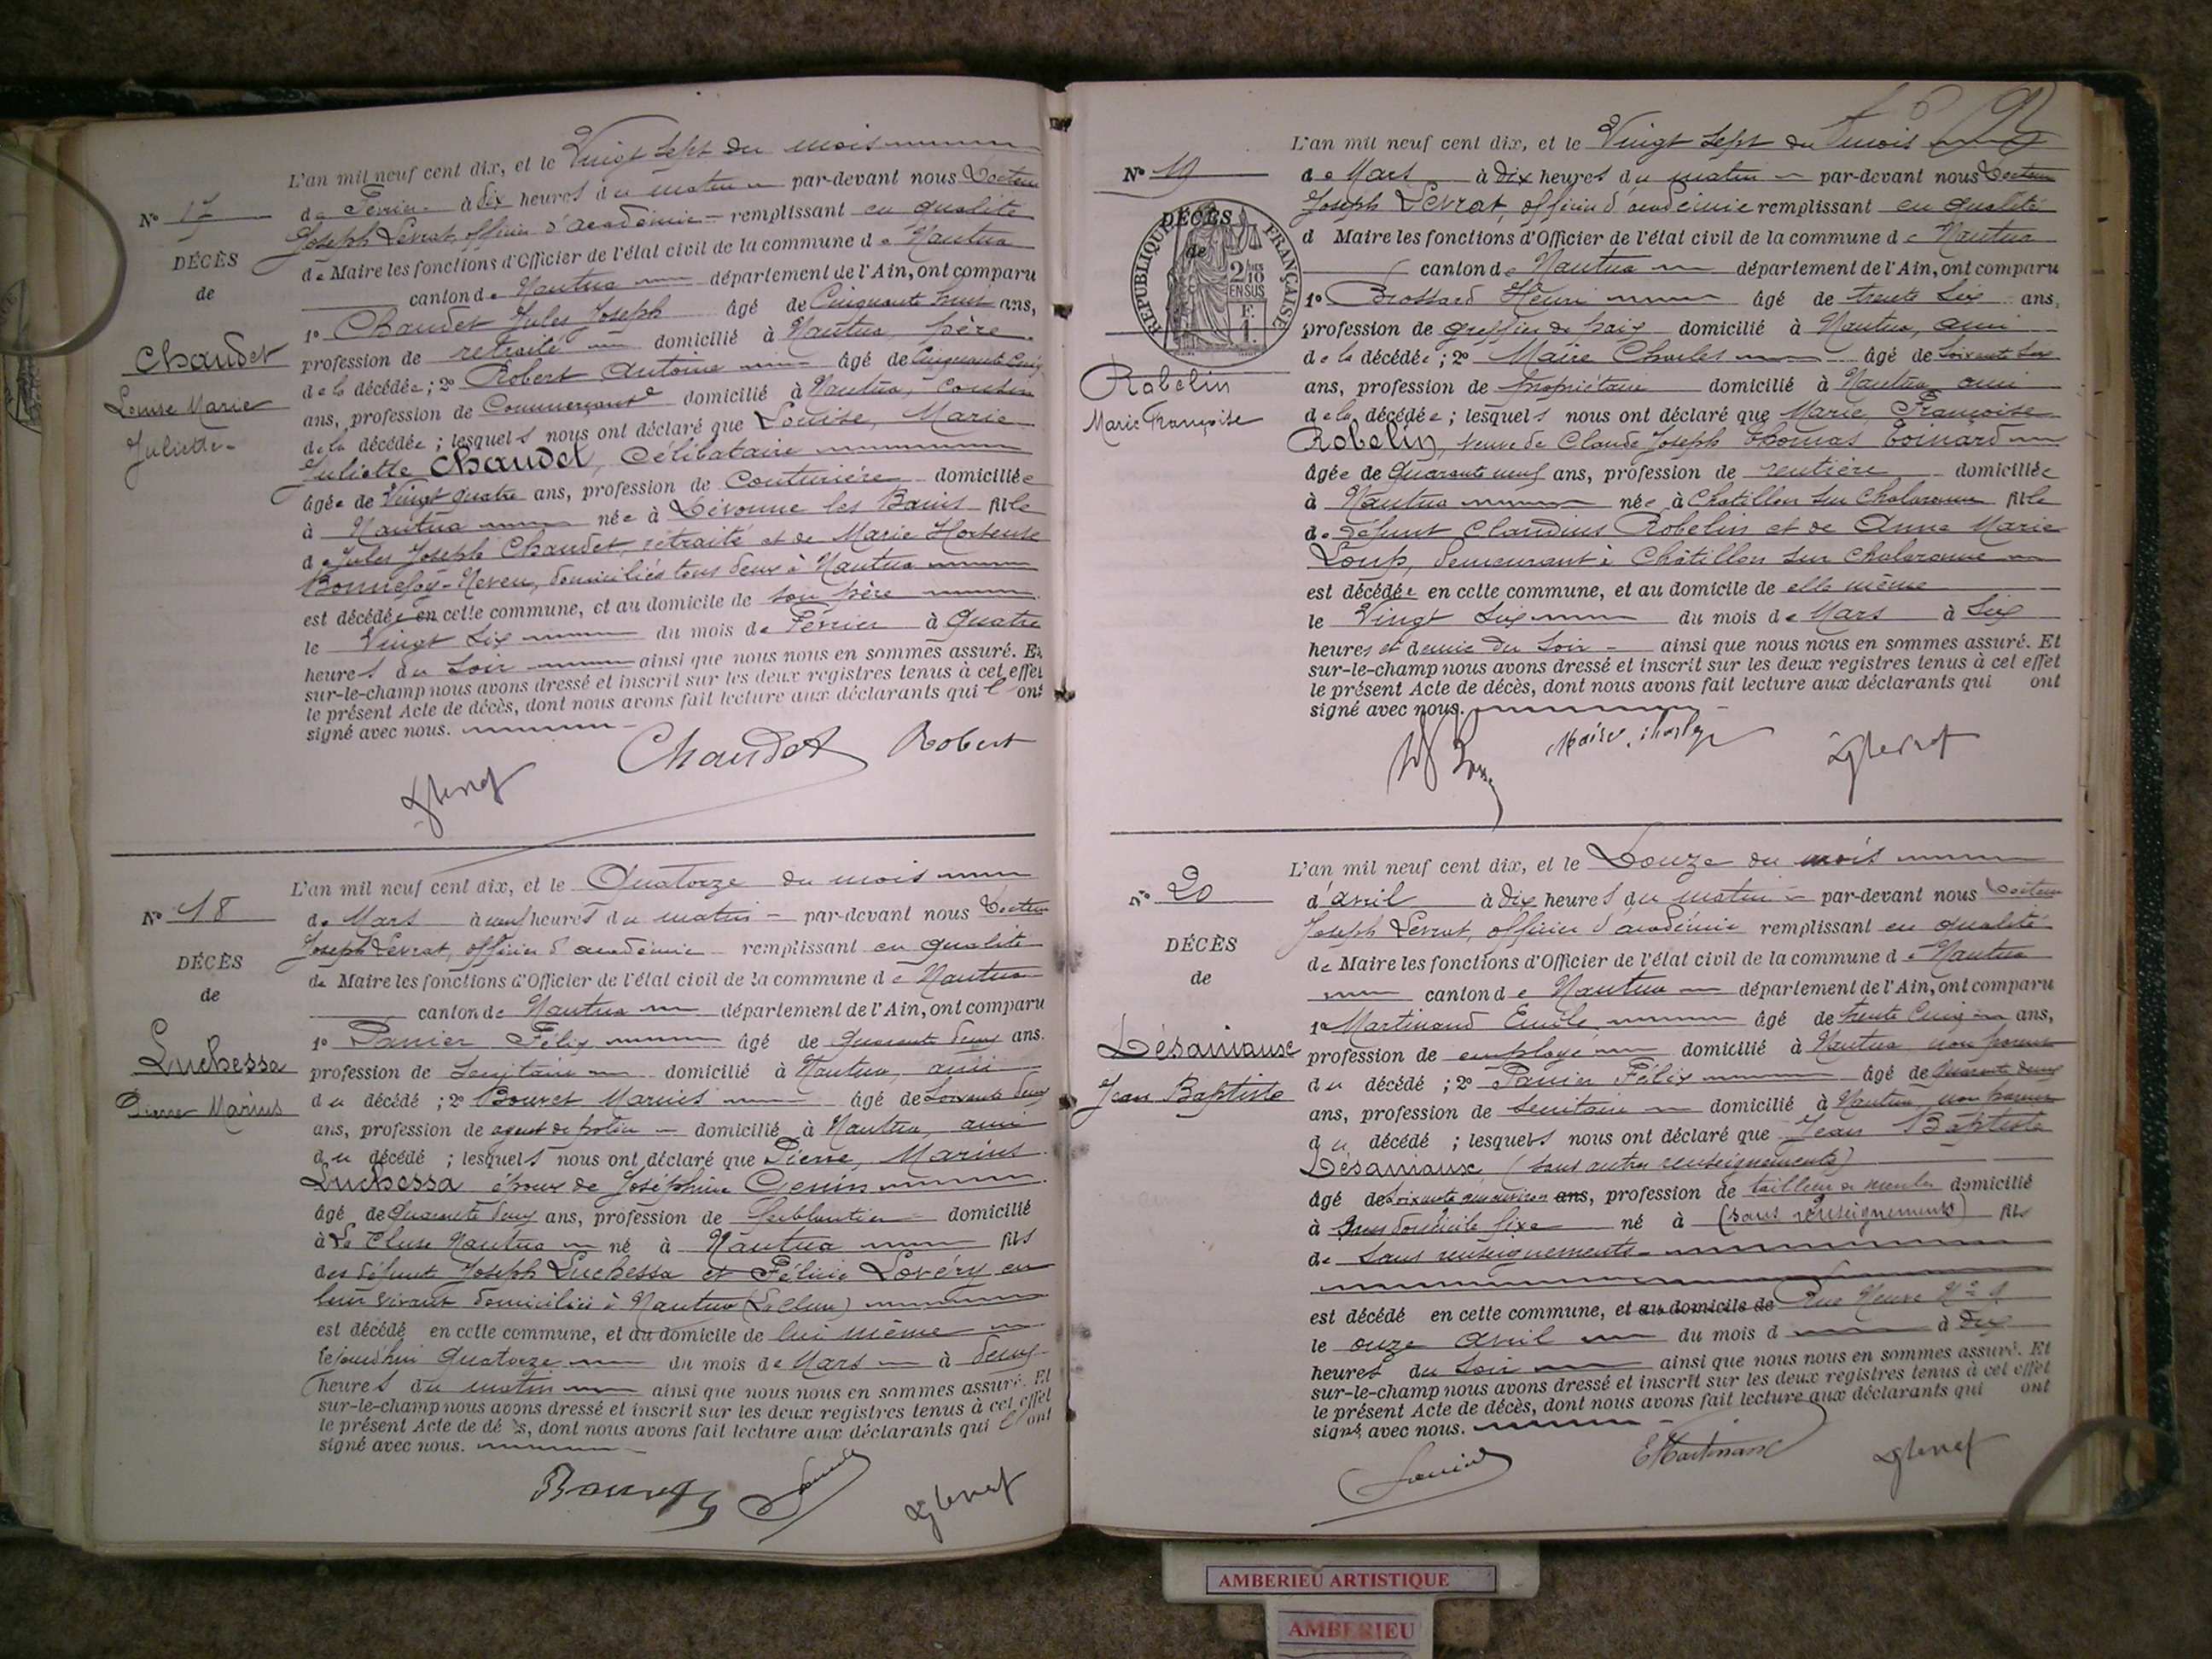 L'an mil neuf cent dix, et le Vingt sept du mois
Nº 17
de Février à dix heures du matin par-devant nous Docteur
Joseph Levrat, officier d'académie remplissant en qualité
DÉCÈS
de Maire les fonctions d'Officier de l'état civil de la commune de Nantua
de
canton de Nantua département de l'Ain, ont comparu
1º Chaudet Jules Joseph âgé de Cinquante huit ans,
Chaudet
profession de retraité domicilié à Nantua, père
Louise Marie
de la décédée; 2º Robert Antoine âgé de Cinquante Cinq
Juliette
ans, profession de Commerçant domicilié à Nantua, Cousin
de la décédée; lesquels nous ont déclaré que Louise, Marie
Juliette Chaudet, Célibataire
âgée de Vingt quatre ans, profession de Couturière domiciliée
à Nantua née à Divonne les Bains fille
de Jules Joseph Chaudet, retraité et de Marie Hortense
Bonnefoy-Neveu, domiciliés tous deux à Nantua
est décédée en cette commune, et au domicile de son père
le Vingt Six du mois de Février à Quatre
heures du soir ainsi que nous nous en sommes assuré. Et
sur-le-champ nous avons dressé et inscrit sur les deux registres tenus à cet effet
le présent Acte de décès, dont nous avons fait lecture aux déclarants qui l'ont
signé avec nous.
Chaudet Robert
L'an mil neuf cent dix, et le Quatorze du mois
Nº 18
de Mars à neuf heures du matin par-devant nous Docteur
Joseph Levrat, officier d'académie remplissant en qualité
DÉCÈS
de Maire les fonctions d'Officier de l'état civil de la commune de Nantua
de
canton de Nantua département de l'Ain, ont comparu
1º Panier Félix âgé de Quarante deux ans.
Luchessa
profession de Secrétaire domicilié à Nantua, ami
Pierre Marius
du décédé; 2º Bouvet Marius âgé de Soixante deux
ans, profession de agent de police domicilié à Nantua, ami
du décédé; lesquels nous ont déclaré que Pierre, Marius
Luchessa époux de Joséphine Genin
âgé de Quarante deux ans, profession de ferblantier domicilié
à La Cluse Nantua né à Nantua fils
des défunts Joseph Luchessa et Félicie Lovéry en
leur vivant domiciliés à Nantua (La Cluse)
est décédé en cette commune, et au domicile de lui même
le jourd'hui Quatorze du mois de Mars à deux
heures du matin ainsi que nous nous en sommes assuré. Et
sur-le-champ nous avons dressé et inscrit sur les deux registres tenus à cet effet
le présent Acte de décès, dont nous avons fait lecture aux déclarants qui l'ont
signé avec nous.
Bouvet
L'an mil neuf cent dix, et le Vingt sept du mois
Nº 19
de Mars à dix heures du matin par-devant nous Docteur
Joseph Levrat, officier d'académie remplissant en qualité
DÉCÈS
d Maire les fonctions d'Officier de l'état civil de la commune de Nantua
de
RÉPUBLIQUE FRANÇAISE
2/10 EN SUS
F. 1.
canton de Nantua département de l'Ain, ont comparu
1º Brossard Henri âgé de trente six ans,
profession de greffier de paix domicilié à Nantua, ami
de la décédée; 2º Maire Charles âgé de Soixante six
Robelin
ans, profession de propriétaire domicilié à Nantua ami
Marie Françoise
de la décédée; lesquels nous ont déclaré que Marie, Françoise
Robelin, veuve de Claude Joseph Thomas Coinard
âgée de Quarante neuf ans, profession de rentière domiciliée
à Nantua née à Chatillon sur Chalaronne fille
de défunt Claudius Robelin et de Anne Marie
Loup, demeurant à Châtillon sur Chalaronne
est décédée en cette commune, et au domicile de elle même
le Vingt Six du mois de Mars à Six
heures et demie du soir ainsi que nous nous en sommes assuré. Et
sur-le-champ nous avons dressé et inscrit sur les deux registres tenus à cet effet
le présent Acte de décès, dont nous avons fait lecture aux déclarants qui ont
signé avec nous.
Maire Charles
L'an mil neuf cent dix, et le Douze du mois
Nº 20
d'avril à dix heures du matin par-devant nous Docteur
Joseph Levrat, officier d'académie remplissant en qualité
DÉCÈS
de Maire les fonctions d'Officier de l'état civil de la commune de Nantua
de
canton de Nantua département de l'Ain, ont comparu
1º Martinand Emile âgé de trente Cinq ans,
Désaniaux
profession de employé domicilié à Nantua non parent
Jean Baptiste
du décédé; 2º Panier Félix âgé de Quarante deux
ans, profession de Secrétaire domicilié à Nantua, non parent
du décédé; lesquels nous ont déclaré que Jean Baptiste
Désaniaux (sans autres renseignements)
âgé de Soixante ans environ ans, profession de tailleur de meules domicilié
à sans domicile fixe né à (sans renseignements) fils
de Sans renseignements
est décédé en cette commune, et au domicile de Rue Neuve Nº 9
le onze avril du mois d à dix
heures du soir ainsi que nous nous en sommes assuré. Et
sur-le-champ nous avons dressé et inscrit sur les deux registres tenus à cet effet
le présent Acte de décès, dont nous avons fait lecture aux déclarants qui ont
signé avec nous.
EMartinand
AMBERIEU ARTISTIQUE
AMBERIEU